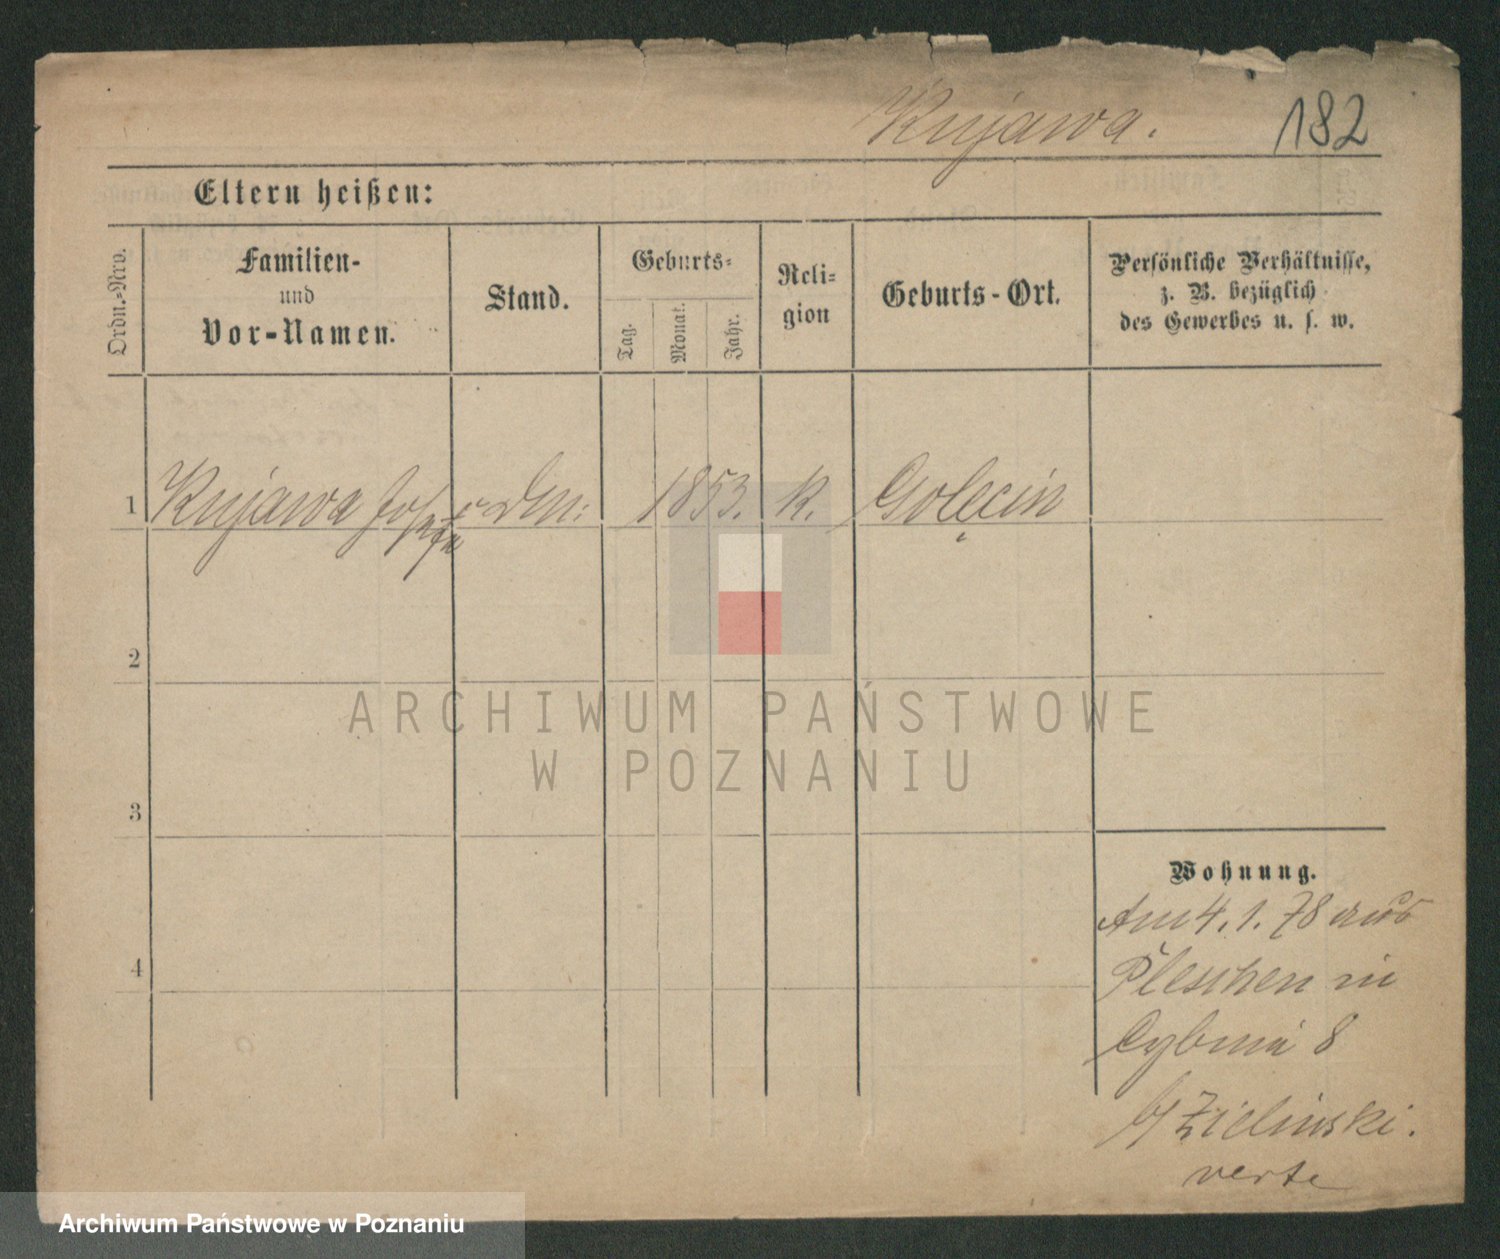 Kujawa. 182
Eltern heißen:
Ordn.-Nro.
Familien-
und
Vor-Namen.
Stand.
Geburts-
Tag.
Monat.
Jahr.
Reli-
gion
Geburts-Ort.
Persönliche Verhältnisse,
z. B. bezüglich
des Gewerbes u. s. w.
1 Kujawa Josefa 1853. K. Golęcin
2
3
4
Wohnung.
Am 4. 1. 78 aus
Pleschen in
Cybina 8
b/ Zielinski.
verte
ARCHIWUM PAŃSTWOWE
W POZNANIU
Archiwum Państwowe w Poznaniu